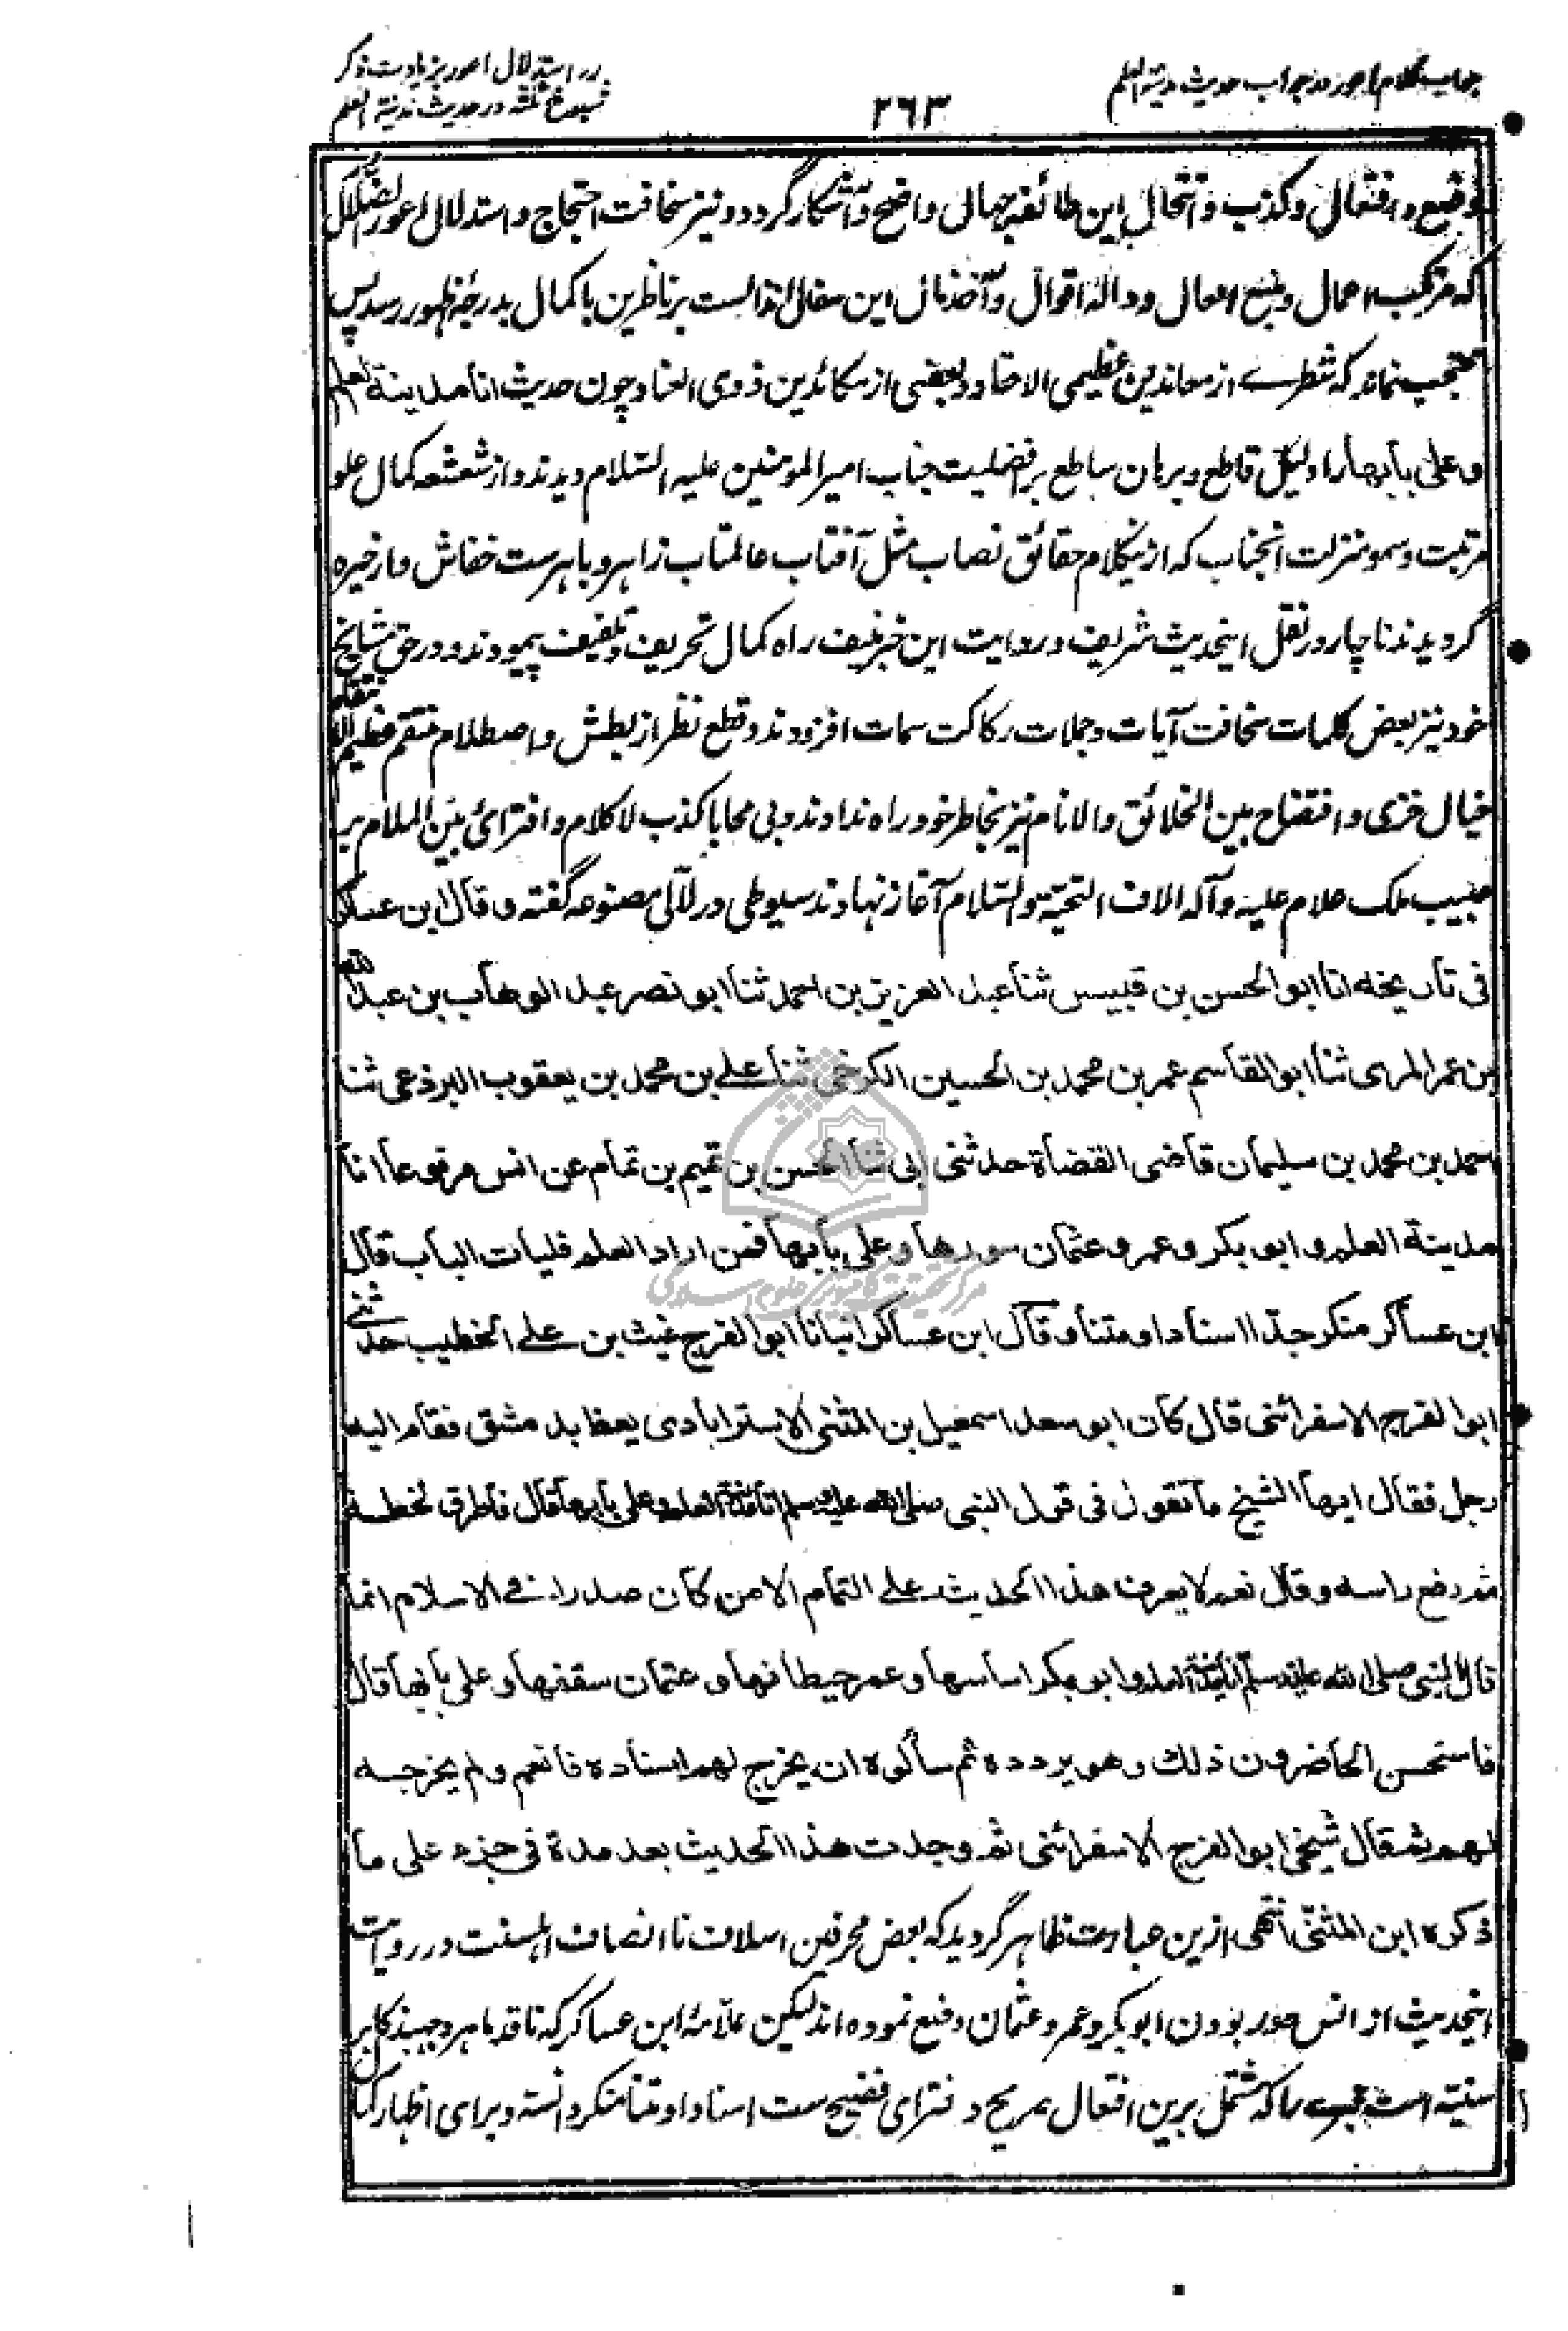 جواب کلام اعور در جواب حدیث مدینة العلم
۲۶۳
رد استدلال اعور بزیادت ذکر
شیوخ ثلثه در حدیث مدینة العلم
وضع و افتعال و کذب و انتحال این طائفه جهال واضح و آشکار گردد و نیز سخافت احتجاج و استدلال اعور
که مرکب اعمال و افعال و اقوال و این مقال است بر ناظرین با کمال بدرجه ظهور رسد پس
محتجب نماند که شطرے از معاندین عظیمی الاحقاد و بعضی از مکائدین ذوی العناد چون حدیث انا مدینة العلم
و علی بابها را دلیل قاطع و برهان ساطع بر افضلیت جناب امیر المومنین علیه السلام دیدند و از شعشعه کمال علو
مرتبت و سمو منزلت آنجناب که ازینکلام حقائق نصاب مثل آفتاب عالمتاب زاهر و باهرست خفاش وار خیره
گردیدند ناچار در نقل اینحدیث شریف و روایت این خبر منیف راه کمال تحریف و تلفیف پیمودند و در حق مشایخ
خود نیز بعض کلمات سخافت آیات و جملات رکاکت سمات افزودند و قطع نظر از بطش و اصطلام منتقم عظیم الانتقام
خیال خزی و افتضاح بین الخلائق و الانام نیز بخاطر خود راه ندادند و بی محابا کذب لا کلام و افترائ بین الملام بر
حبیب ملک علام علیه و آله الاف التحیة و السلام آغاز نهادند سیوطی در لآلی مصنوعه گفته و قال ابن عساکر
فی تاریخه انا ابو الحسن بن قبیس ثنا عبد العزیز بن احمد ثنا ابو نصر عبد الوهاب بن عبد الله
بن عمر المری ثنا ابو القاسم عمر بن محمد بن الحسین الکرخی ثنا علے بن محمد بن یعقوب البرذعی ثنا
احمد بن محمد بن سلیمان قاضی القضاة حدثنی ابی ثنا الحسن بن تمیم بن تمام عن انس مرفوعا انا
مدینة العلم و ابو بکر و عمر و عثمان سورها و علی بابها فمن اراد العلم فلیات الباب قال
ابن عساکر منکر جدّا اسنادا و متنا و قال ابن عساکر انبانا ابو الفرج غیث بن علے الخطیب حدثنی
ابو الفرج الاسفرائنی قال کان ابو سعد اسمعیل بن المثنی الاسترابادی یعظ بدمشق فقام الیه
رجل فقال ایها الشیخ ما تقول فی قول النبی صلی الله علیه وسلم انا مدینة العلم و علی بابها قال فاطرق لحظة
ثم رفع راسه و قال نعم لا یعرف هذا الحدیث علے التمام الا من کان صدرا فے الاسلام انما
قال النبی صلی الله علیه وسلم انا مدینة العلم و ابو بکر اساسها و عمر حیطانها و عثمان سقفها و علی بابها قال
فاستحسن الحاضرون ذلک و هو یردده ثم سألوه ان یخرج لهم اسناده فانعم و لم یخرجه
لهم ثم قال شیخی ابو الفرج الاسفرائنی ثم وجدت هذا الحدیث بعد مدة فی جزء علی ما
ذکره ابن المثنّی انتهی ازین عبارت ظاهر گردید که بعض محرفین اسلاف نا انصاف اهلسنت در روایت
اینحدیث از انس سور بودن ابو بکر و عمر و عثمان وضع نموده اند لیکن علّامۀ ابن عساکر که ناقد ماهر و جهبذ کابر
سنیه است خبرے را که مشتمل برین افتعال صریح و افترای فضیح ست اسنادا و متنا منکر دانسته و برای اظهار کمال